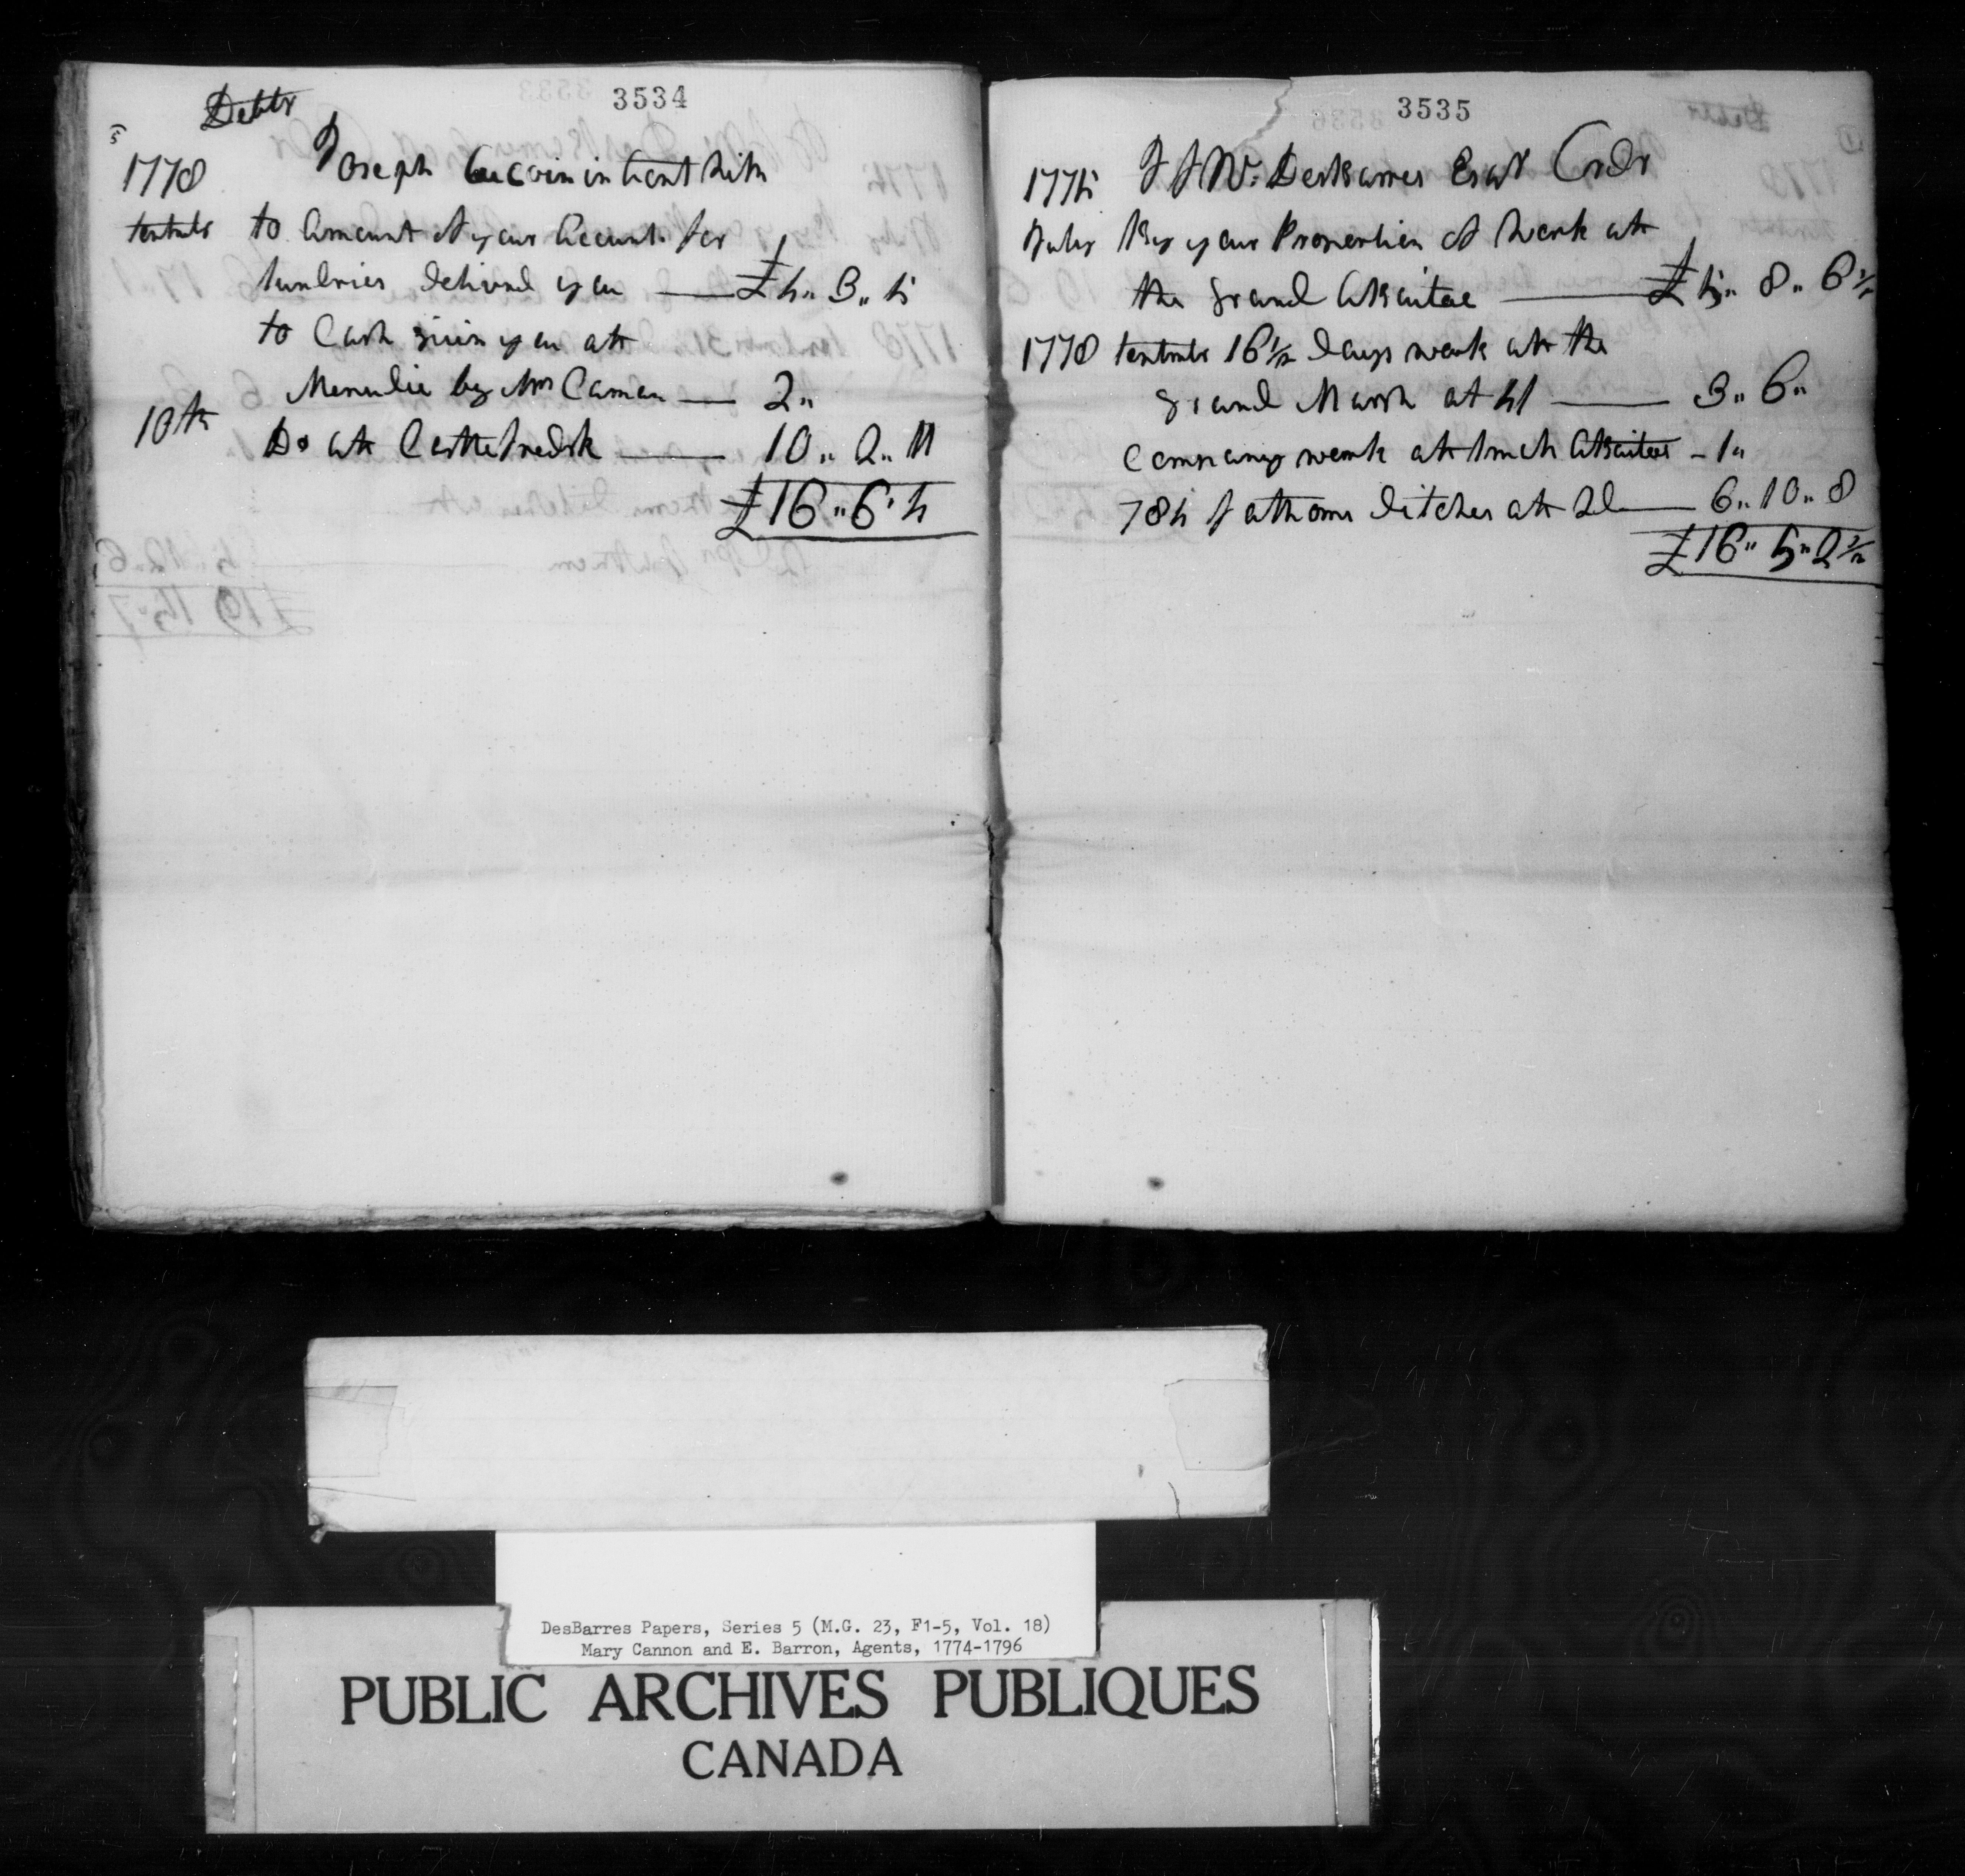 3534
Debtr
1778 Joseph Gucoin in Count With
Septmbr to Amount of your Account for
Sundries delivrd you — £4.. 3.. 5
to Cash given you att
Menudie by Mrs Caman — 2..
10th Do att Castlefredrk — 10.. 2.. 11
£16..6.4
3535
1775 J F W. DesBarres Esqr Crdr
July By your Proportion of Work att
the grand Abbaitoe — £5.. 8.. 6 1/2
1778 Septmbr 16 1/2 days work att the
grand Marsh at 4/ — 3.. 6..
Company work att Abbaitoe – 1..
784 fathoms ditches att 2d — 6.. 10.. 8
£16.. 5.. 2 1/2
DesBarres Papers, Series 5 (M.G. 23, F1-5, Vol. 18)
Mary Cannon and E. Barron, Agents, 1774-1796
PUBLIC ARCHIVES PUBLIQUES
CANADA